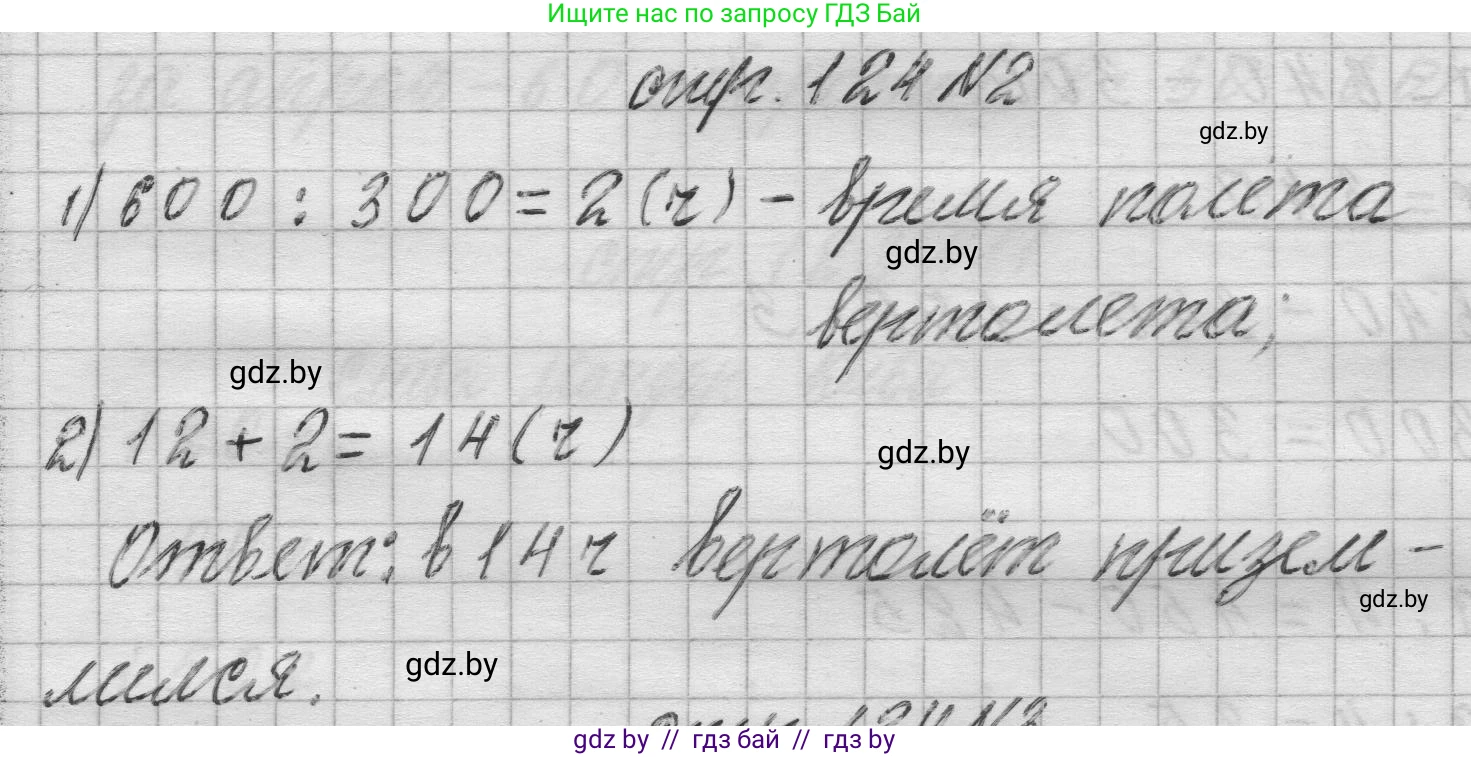 Ищите нас по запросу ГДЗ Бай
стр. 124 N2
gdz.by
1) 600 : 300 = 2 (ч) - время полёта
gdz.by
вертолета;
gdz.by
2) 12 + 2 = 14 (ч)
gdz.by
Ответ: в 14 ч вертолёт призем -
gdz.by
лился.
gdz.by
стр. 124 N3
gdz by // гдз бай // гдз by